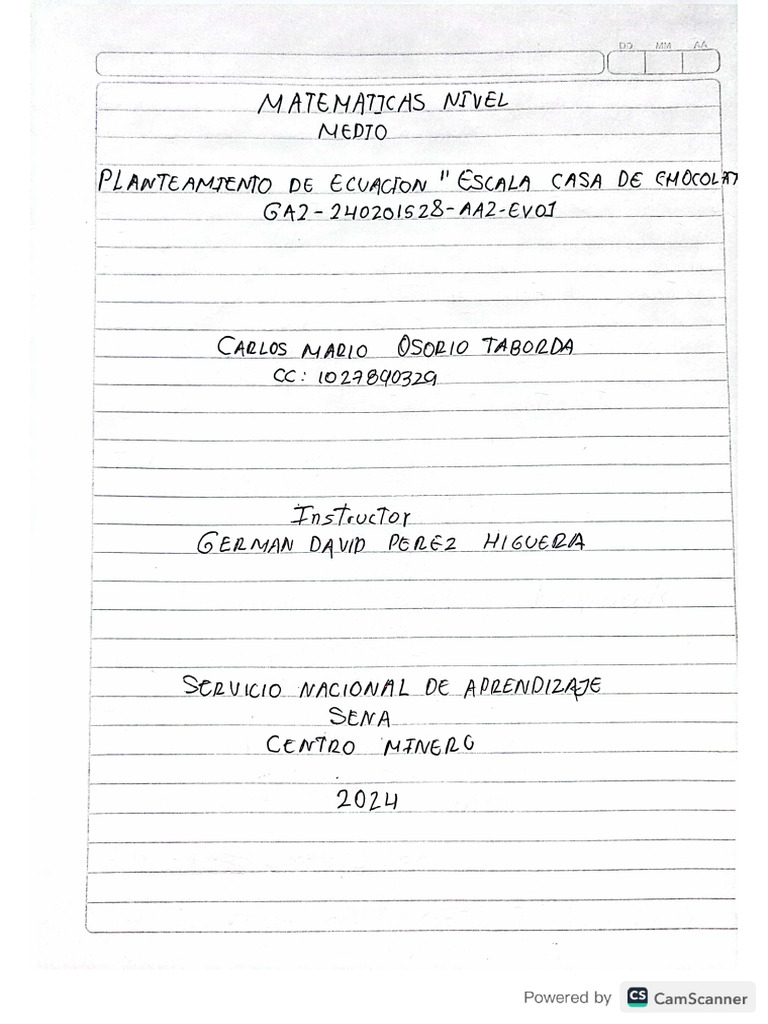 DD MM AA
MATEMATICAS NIVEL
MEDIO
PLANTEAMIENTO DE ECUACION " ESCALA CASA DE CHOCOLAT
GA2-240201528-AA2-EV01
CARLOS MARIO OSORIO TABORDA
CC: 1027890329
Instructor
GERMAN DAVID PEREZ HIGUERA
SERVICIO NACIONAL DE APRENDIZAJE
SENA
CENTRO MINERO
2024
Powered by CS CamScanner